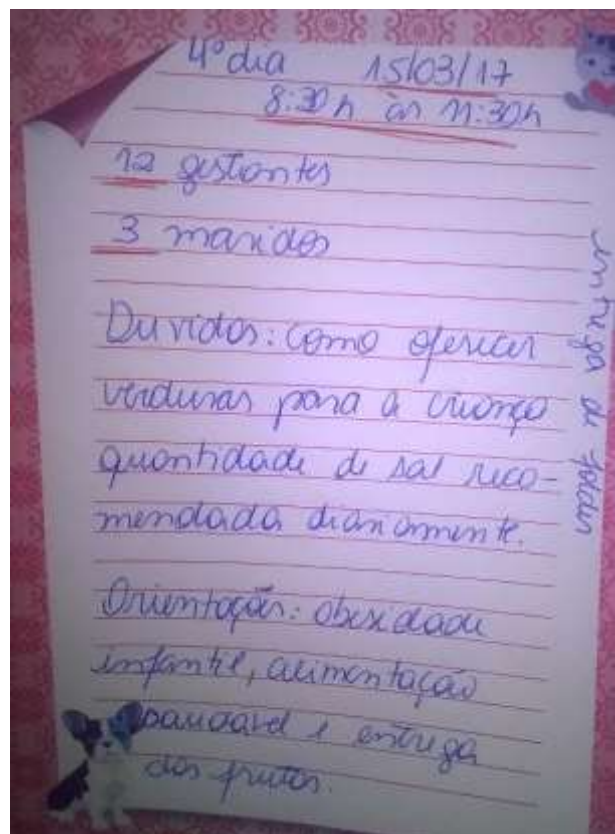 4º dia 15/03/17
8:30 h às 11:30h
12 gestantes
3 maridos
Duvidas: como oferecer
verduras para a criança
quantidade de sal reco-
mendada diariamente.
Orientação: obesidade
infantil, alimentação
saudável e entrega
das frutas.
entrega de folder